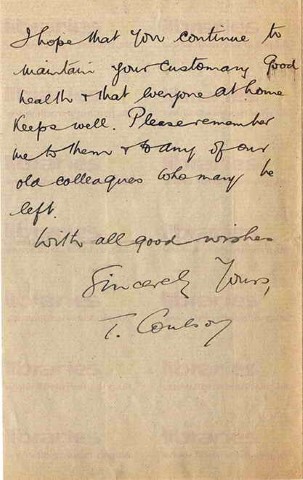 I hope that you continue to
maintain your customary good
health & that everyone at home
keeps well. Please remember
me to them & to any of our
old colleagues who may be
left.
With all good wishes
Sincerely Yours,
T. Coulson
libraries